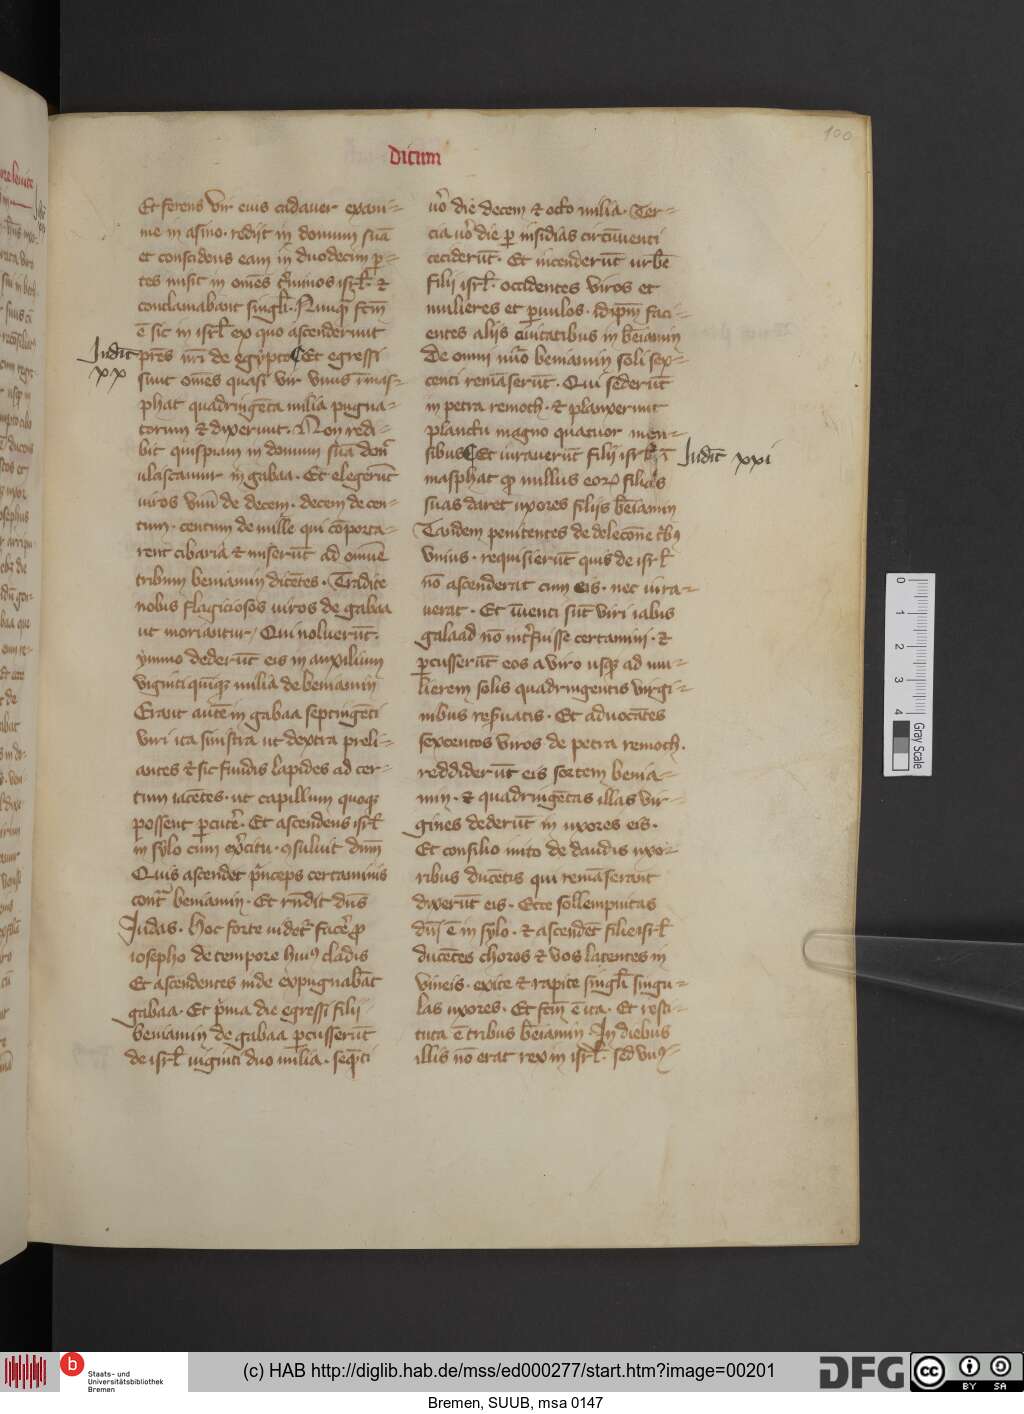 100
dicum
Et ferens vir eius cadauer exani=
me in asino · redijt in domum suā
et conscidens eam in duodecim p̲=
tes misit in om̄es t̓minos isrl̄ · ⁊
conclamabant singlī · Nunq̄ fcm̄
ē sic in isrl̄ ex quo ascenderunt
Iudic̄ pr̄es nr̄i de egypto ¶ Et egressi
xx sunt om̄es quasi vir vnus ī mas=
phat quadringēta milia pugna=
torum ⁊ dixerunt · Non redi=
bit quispiam in domum suā donˀ
vlascamur in gabaa · Et elegerūt
viros vnū de decem · decem de cen=
tum · centum de mille qui cōporta=
rent cibaria ⁊ miserūt ad omnē
tribum beniamin dicētes · Tradite
nobis flagiciosos viros de gabaa
ut moriantur / Qui noluerūt ·
ymmo dederūt eis in auxilium
viginti quīqꝫ milia de beniamin
Erant autē in gabaa septingēti
viri ita sinistra ut dextra preli=
antes ⁊ sic fundis lapides ad cer=
tum iacētes · ut capillum quoqꝫ
possent p̲cuter̓ · Et ascendens isrl̄
in sylo cum ex̓citu · ꝯsuluit dn̄m
Quis ascendet p̓nceps certaminis
contᵃ beniamin · Et rn̄dit dn̄s
Judas · Hoc forte videt᷑ facer̓ ꝓ
iosepho de tempore huiꝰ cladis
Et ascendentes inde expugnabāt
gabaa · Et p̓ma die egressi filii
beniamin de gabaa p̲cusserūt
de isrl̄ viginti duo milia · seq̄ti
v̓o die decem ⁊ octo milia · Ter=
cia v̓o die p̲ insidias circūuenti
ceciderūt · Et incenderūt urbē
filii isrl̄ · occidentes viros et
mulieres et p̲uulos · idip̄m faci=
entes aliis ciuitatibus in bēiamin
De omni nūo beniamin soli sex=
centi remāserūt · Qui sederūt
in petra remoch · ⁊ planxerunt
planctu magno quatuor men=
sibus ¶ Et iurauerūt filij isrl̄ ī Iudic̄ xxi
masphat ꝙ nullus eoꝝ filias
suas daret uxores filijs bēiamin
Tandem penitentes de delecōne t̓bꝰ
vnius · requisierūt quis de isrl̄
nō ascenderat cum eis · nec iura=
uerat · Et īuenti sūt viri iabis
galaad nō int̓fuisse certamini · ⁊
p̲cusserūt eos a viro usqꝫ ad mu=
lierem solis quadringentis virgi=
nibus res̓uatis · Et aduocātes
sexcentos viros de petra remoch ·
reddiderūt eis sortem benia=
min · ⁊ quadringētas illas vir=
gines dederūt in uxores eis ·
Et consilio inito de dandis uxo=
ribus ducētis qui remāserant
dixerūt eis · Ecce sollempnitas
dn̄i ē in sylo · ⁊ ascendēt filie isrl̄
ducētes choros ⁊ vos latentes in
vineis · exite ⁊ rapite singlī singu=
las uxores · Et fcm̄ ē ita · Et resti=
tuta ē tribus bēiamin · In diebus
illis nō erat rex in isrl̄ · sed vnꝰ=
0
1
2
3
4
Gray Scale
b
Staats- und
Universitätsbibliothek
Bremen
(c) HAB http://diglib.hab.de/mss/ed000277/start.htm?image=00201
DFG
cc
BY SA
Bremen, SUUB, msa 0147